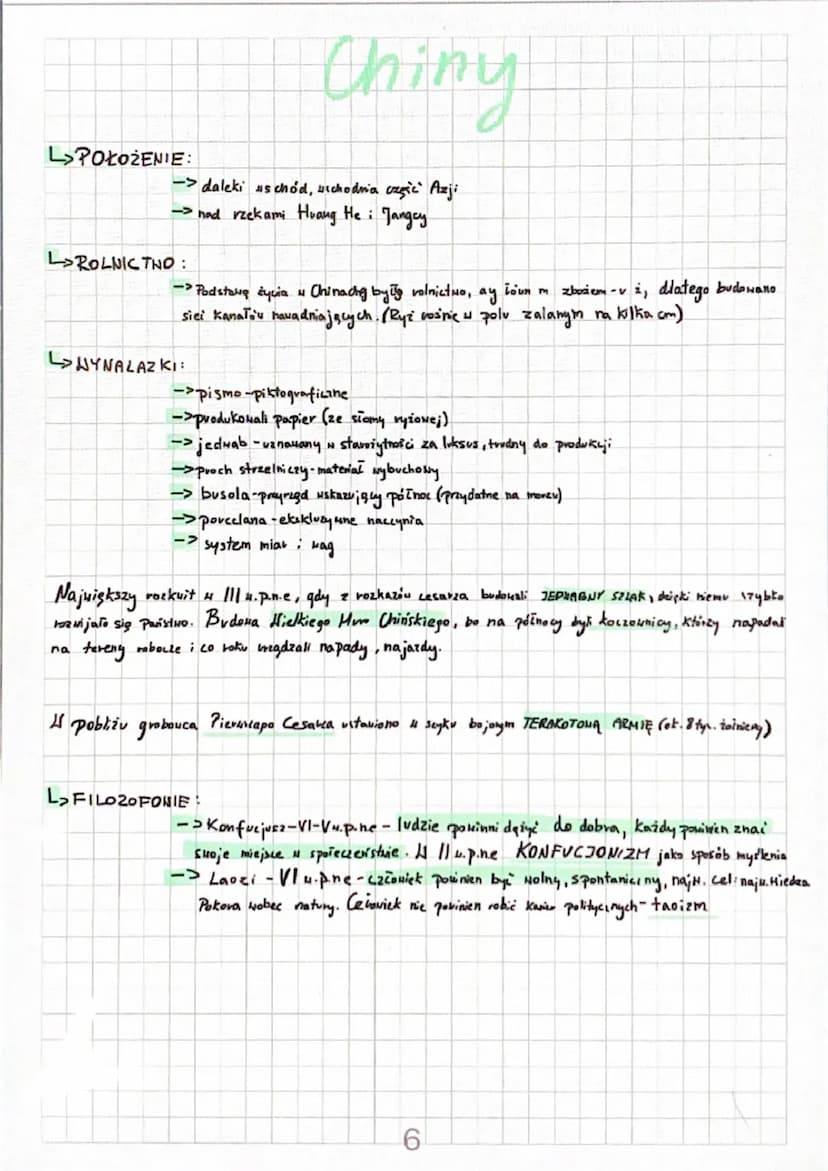 Chiny
↳POŁOŻENIE:
-> daleki wschód, wschodnia część Azji
-> nad rzekami Huang He i Jangcy
↳ROLNICTWO:
-> Podstawą życia w Chinach było rolnictwo, zbożem ż, dlatego budowano
sieć kanałów nawadniających. (Ryż rośnie w polu zalanym na kilka cm)
↳WYNALAZKI:
->pismo-piktograficzne
->produkowali papier (ze słomy ryżowej)
->jedwab - uznawany w starożytności za luksus, trudny do produkcji
->proch strzelniczy-materiał wybuchowy
-> busola-przyrząd wskazujący północ (przydatne na morzu)
->porcelana - ekskluzywne naczynia
-> system miar i wag
Największy rozkwit w III w.p.n.e, gdy z rozkazów cesarza budowali JEDWABNY SZLAK, dzięki niemu szybko
rozwijało się państwo. Budowa Wielkiego Muru Chińskiego, bo na północy byli koczownicy, którzy napadali
na tereny i co roku urządzali napady, najazdy.
W pobliżu grobowca Pierwszego Cesarza ustawiono w szyku bojowym TERAKOTOWĄ ARMIĘ (ok. 8 tys. żołnierzy)
↳FILOZOFOWIE:
-> Konfucjusz-VI-V w.p.ne - ludzie powinni dążyć do dobra, każdy powinien znać
swoje miejsce w społeczeństwie. W II w.p.ne KONFUCJONIZM jako sposób myślenia
-> Laozi - VI w.p.ne - człowiek powinien być wolny, spontaniczny, najw. cel: najw. wiedza
Pokora wobec natury. Człowiek nie powinien robić karier politycznych - taoizm
6